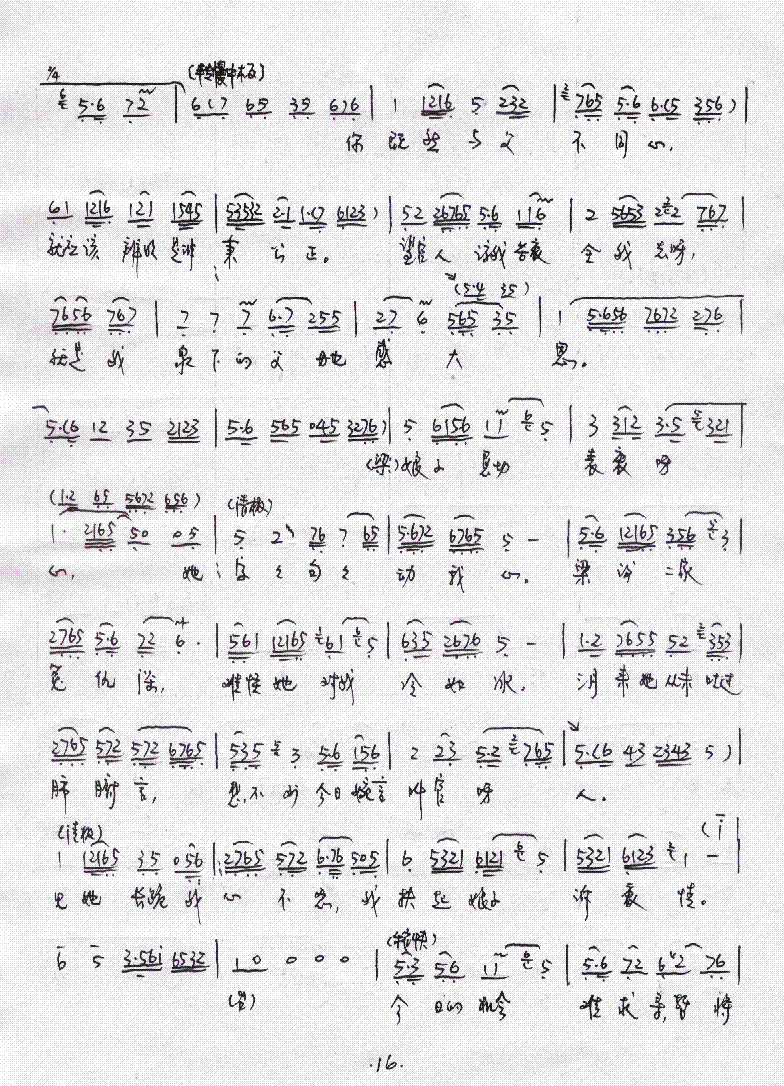 2/4
5·6 72 | 6(7 65 35 676 | 1 1216 5 232 | 765 5·6 6·(5 356) |
你既然与父 不同心，
61 1216 121 1545 | 53532 2·1 1·(7 6123) | 52 26765 5·6 116 | 2 5653 22 767 |
就应该辨明是非 秉公正。 望官人 全我 呀，
7656 767 | 7 7 7 6·7 255 | 27 6 565 35 | 1 5·656 7672 276 |
(5·4 35)
就是我 泉下的父母也感大 恩。
5·(6 12 35 2123 | 5·6 565 045 3276) | 5 6156 11 5 | 3 312 3·5 321 |
(梁)娘子 恳切 表衷呀
(1·2 65 5672 656) (清板)
1· 2165 50 05 | 5 2 76 7 65 | 5·672 6765 5 – | 5·6 12165 356 3 |
心， 她字字句句 动我心。 梁 二家
2765 5·6 72 6· | 561 12165 61 5 | 635 2676 5 – | 1·2 7655 52 353 |
冤仇深， 难怪她对我 冷如冰。 她从未吐过
2765 572 572 6765 | 535 3 5·6 156 | 2 23 5·2 765 | 5·(6 43 2343 5) |
肺腑言， 想不到今日婉言 叫官呀 人。
(清板)
1 12165 35 056 | 2765 572 6·76 505 | 6 5321 6121 5 | 5321 6123 1 – |
见她长跪我心不忍，我扶起娘子 诉衷情。
6 5 3·561 6532 | 10 0 0 0 | 5·3 56 11 5 | 5·6 72 62 76 |
(白) 今日的机会 难求 暂将
·16·